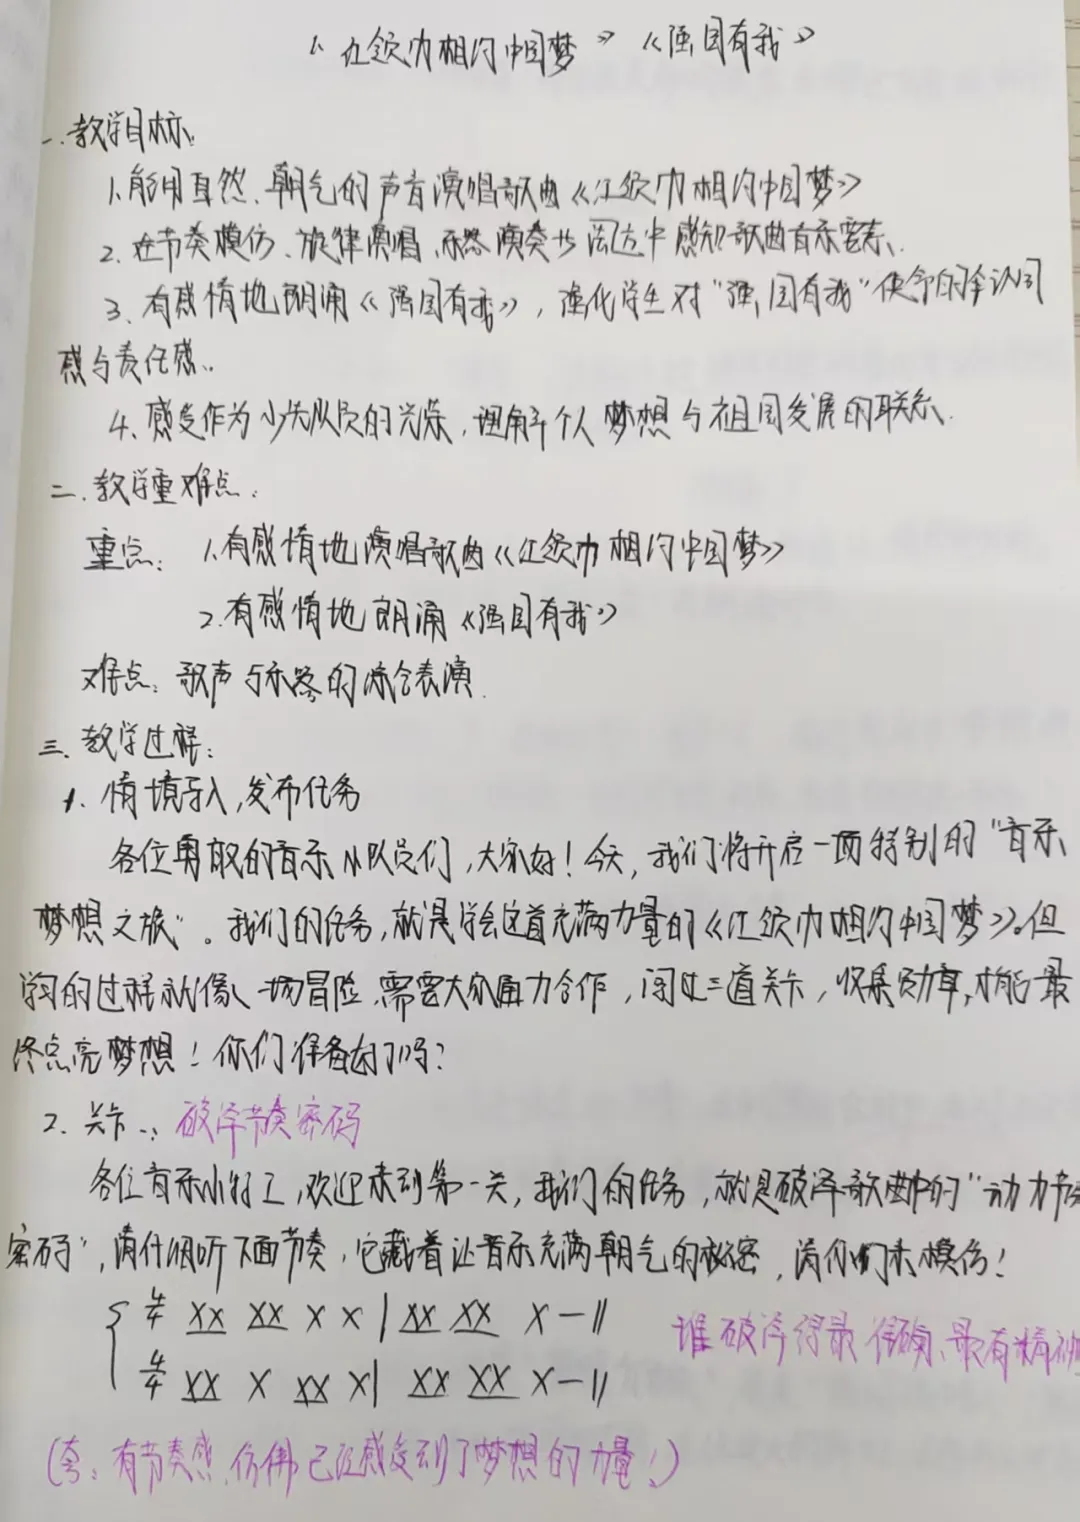 《红领巾相约中国梦》《强国有我》
一、教学目标:
1.能用自然、朝气的声音演唱歌曲《红领巾相约中国梦》
2.在节奏模仿、旋律演唱、乐器演奏书阅达中感知歌曲音乐要素.
3.有感情地朗诵《强国有我》,强化学生对“强国有我”使命的认同
感与责任感..
4.感受作为少先队员的光荣,理解个人梦想与祖国发展的联系.
二、教学重难点:
重点: 1.有感情地演唱歌曲《红领巾相约中国梦》
2.有感情地朗诵《强国有我》
难点:歌声与乐器的综合表演.
三、教学过程:
1.情境导入,发布任务
各位勇敢的音乐小队员们,大家好!今天,我们将开启一项特别的“音乐
梦想之旅”。我们的任务,就是学会这首充满力量的《红领巾相约中国梦》。但
学习的过程就像一场冒险,需要大家通力合作,闯过三道关卡,收集勋章,才能最
终点亮梦想!你们准备好了吗?
2.关卡一:破译节奏密码
各位音乐小特工,欢迎来到第一关,我们的任务,就是破译歌曲中的“动力节奏
密码”,请仔细听下面节奏,它藏着让音乐充满朝气的秘密,请你们来模仿!
4/4 XX XX X X | XX XX X - ||
谁破译得最准确、最有精神
4/4 XX X XX X | XX XX X - ||
(夸:有节奏感,仿佛已经感受到了梦想的力量!)